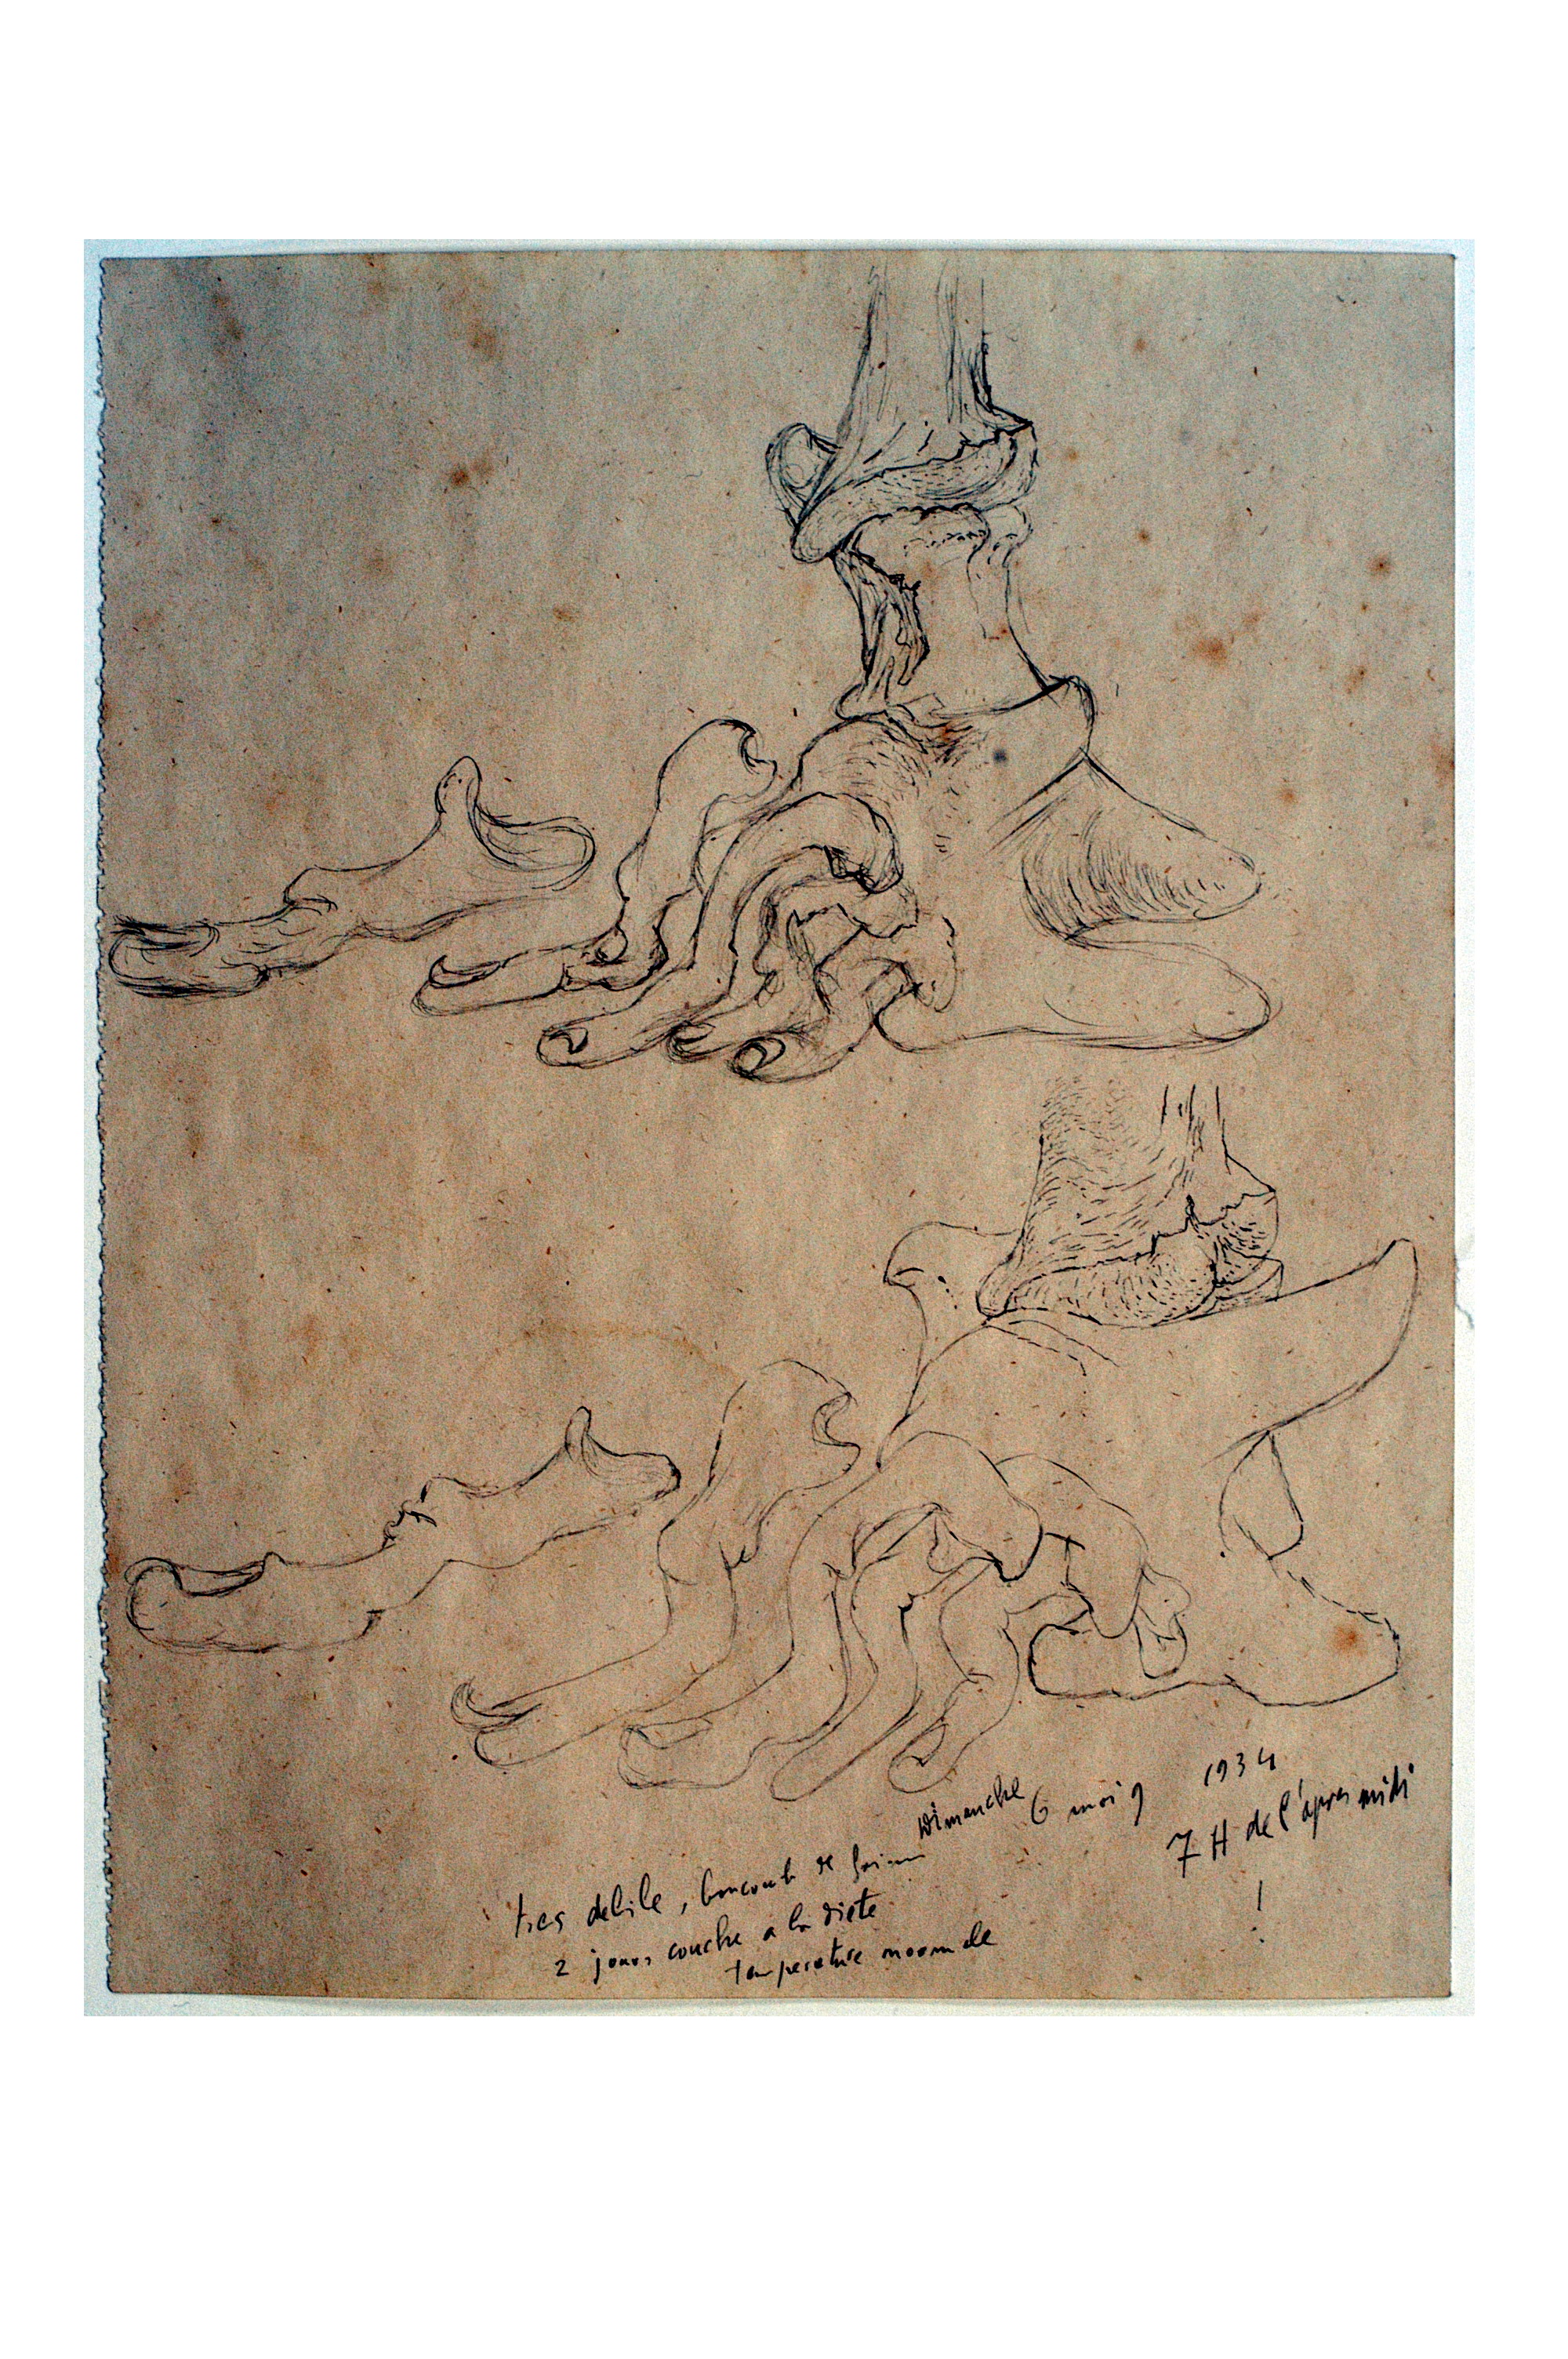 Dimanche 6 moi 9 1934
7 H de l'apres midi
!
tres debile, boucoub de faim
2 jours couche a la diete
temperature normale